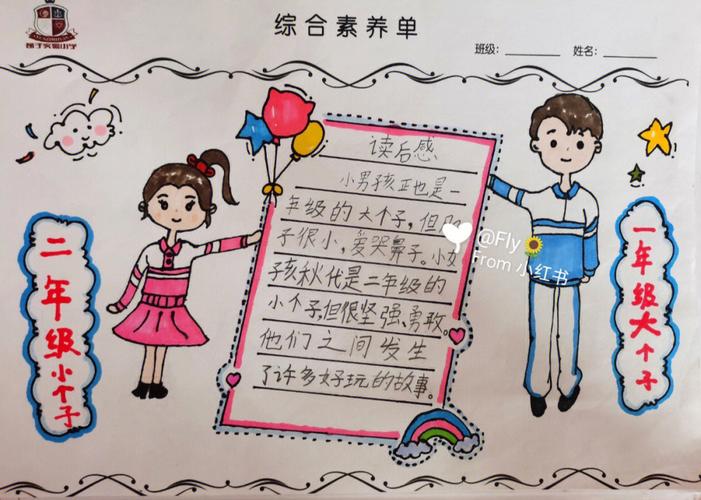 综合素养单
实小学
班级：________ 姓名：________
读后感
小男孩正也是一
年级的大个子，但胆
子很小，爱哭鼻子。小女
孩秋代是二年级的
小个子，但很坚强、勇敢。
他们之间发生
了许多好玩的故事。
二年级小个子
一年级大个子
@Fly🌻
From 小红书